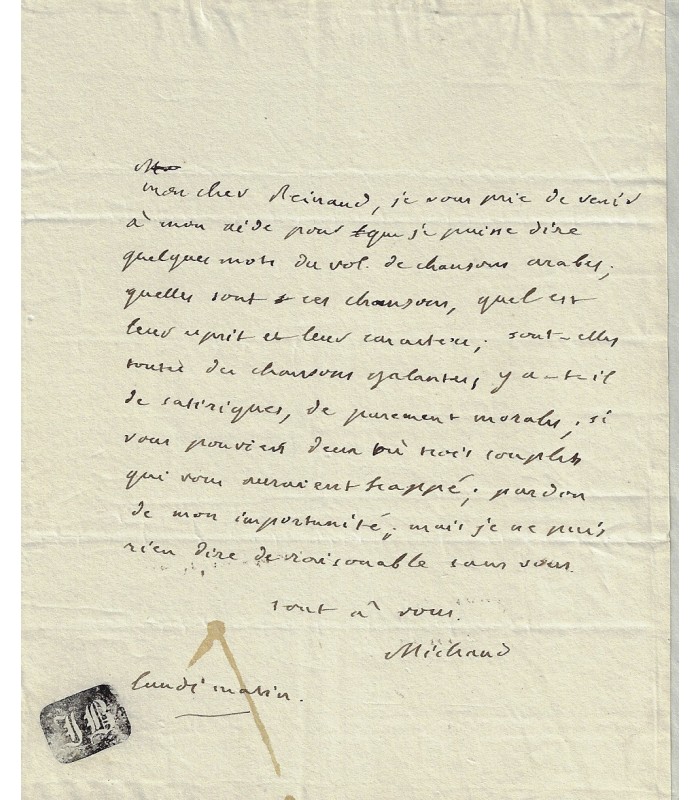 mon cher Reinaud, je vous prie de venir
à mon aide pour que je puisse dire
quelques mots du vol. de chansons arabes;
quelles sont ces chansons, quel est
leur esprit et leur caractere; sont-elles
toutes des chansons galantes, y a-t-il
de satiriques, de purement morales; si
vous pouviez deux ou trois couplets
qui vous auraient frappé; pardon
de mon importunité; mais je ne puis
rien dire de raisonable sans vous.
tout à vous.
Michaud
lundi matin.